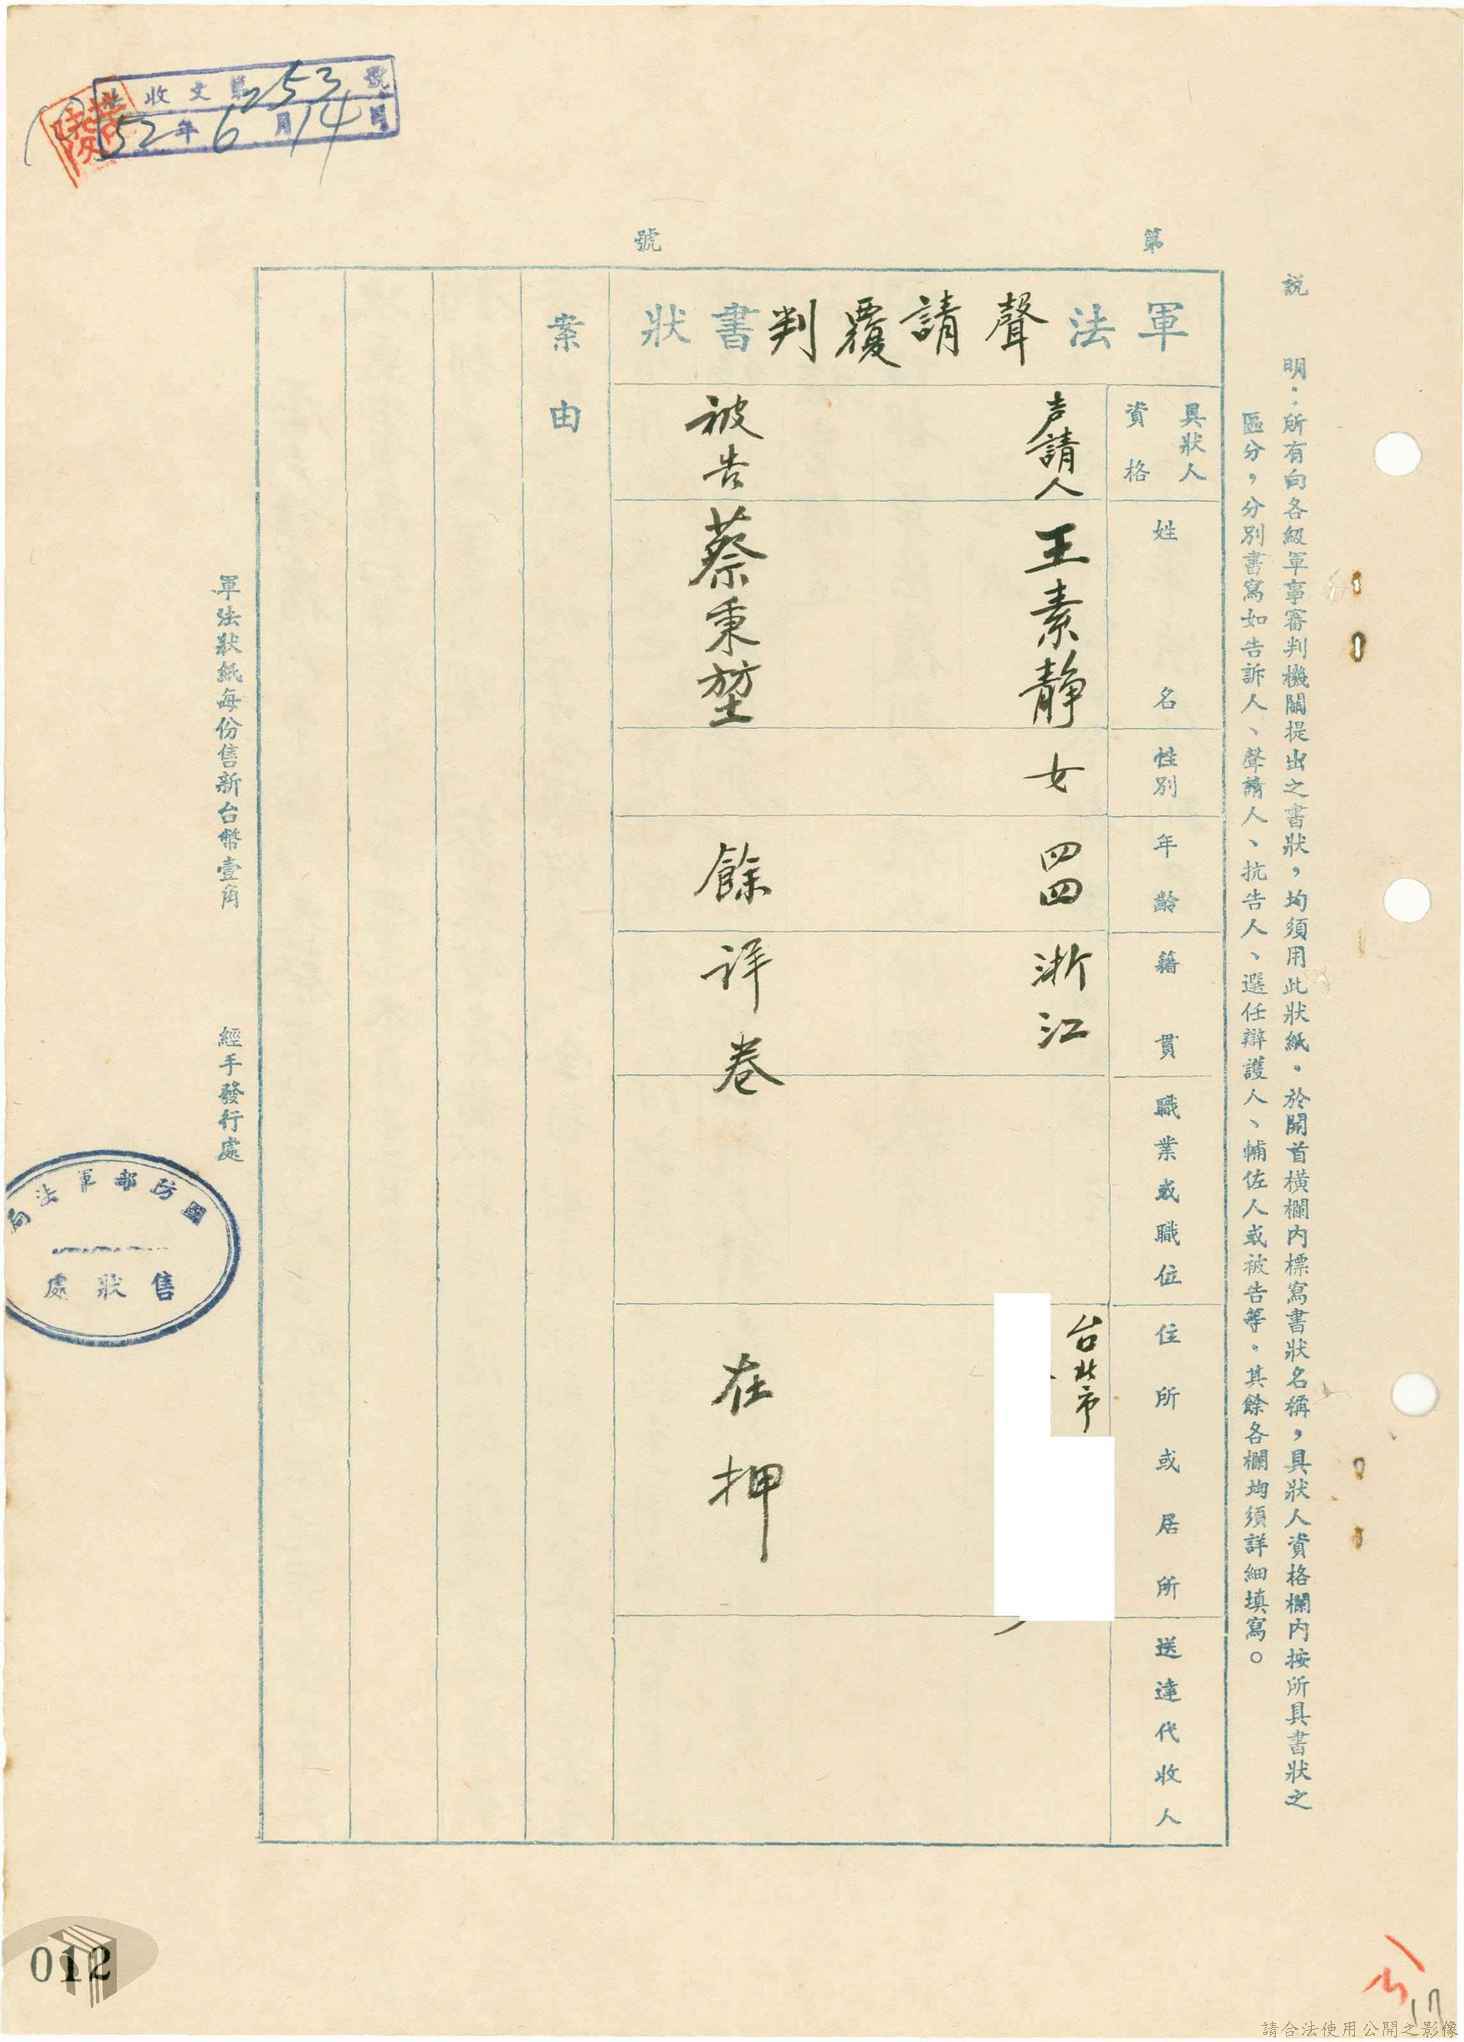 收文第253號
52年6月14日
第 號
說明：所有向各級軍事審判機關提出之書狀，均須用此狀紙。於開首橫欄內標寫書狀名稱，具狀人資格欄內按所具書狀之
區分，分別書寫如告訴人、聲請人、抗告人、選任辯護人、輔佐人或被告等。其餘各欄均須詳細填寫。
軍法聲請覆判書狀
具狀人
資格
姓名
性別
年齡
籍貫
職業或職位
住所或居所
送達代收人
声請人
王素靜
女
四四
浙江
台北市
被告
蔡秉堃
餘詳卷
在押
案由
軍法狀紙每份售新台幣壹角
經手發行處
國防部軍法局
售狀處
012
17
請合法使用公開之影像